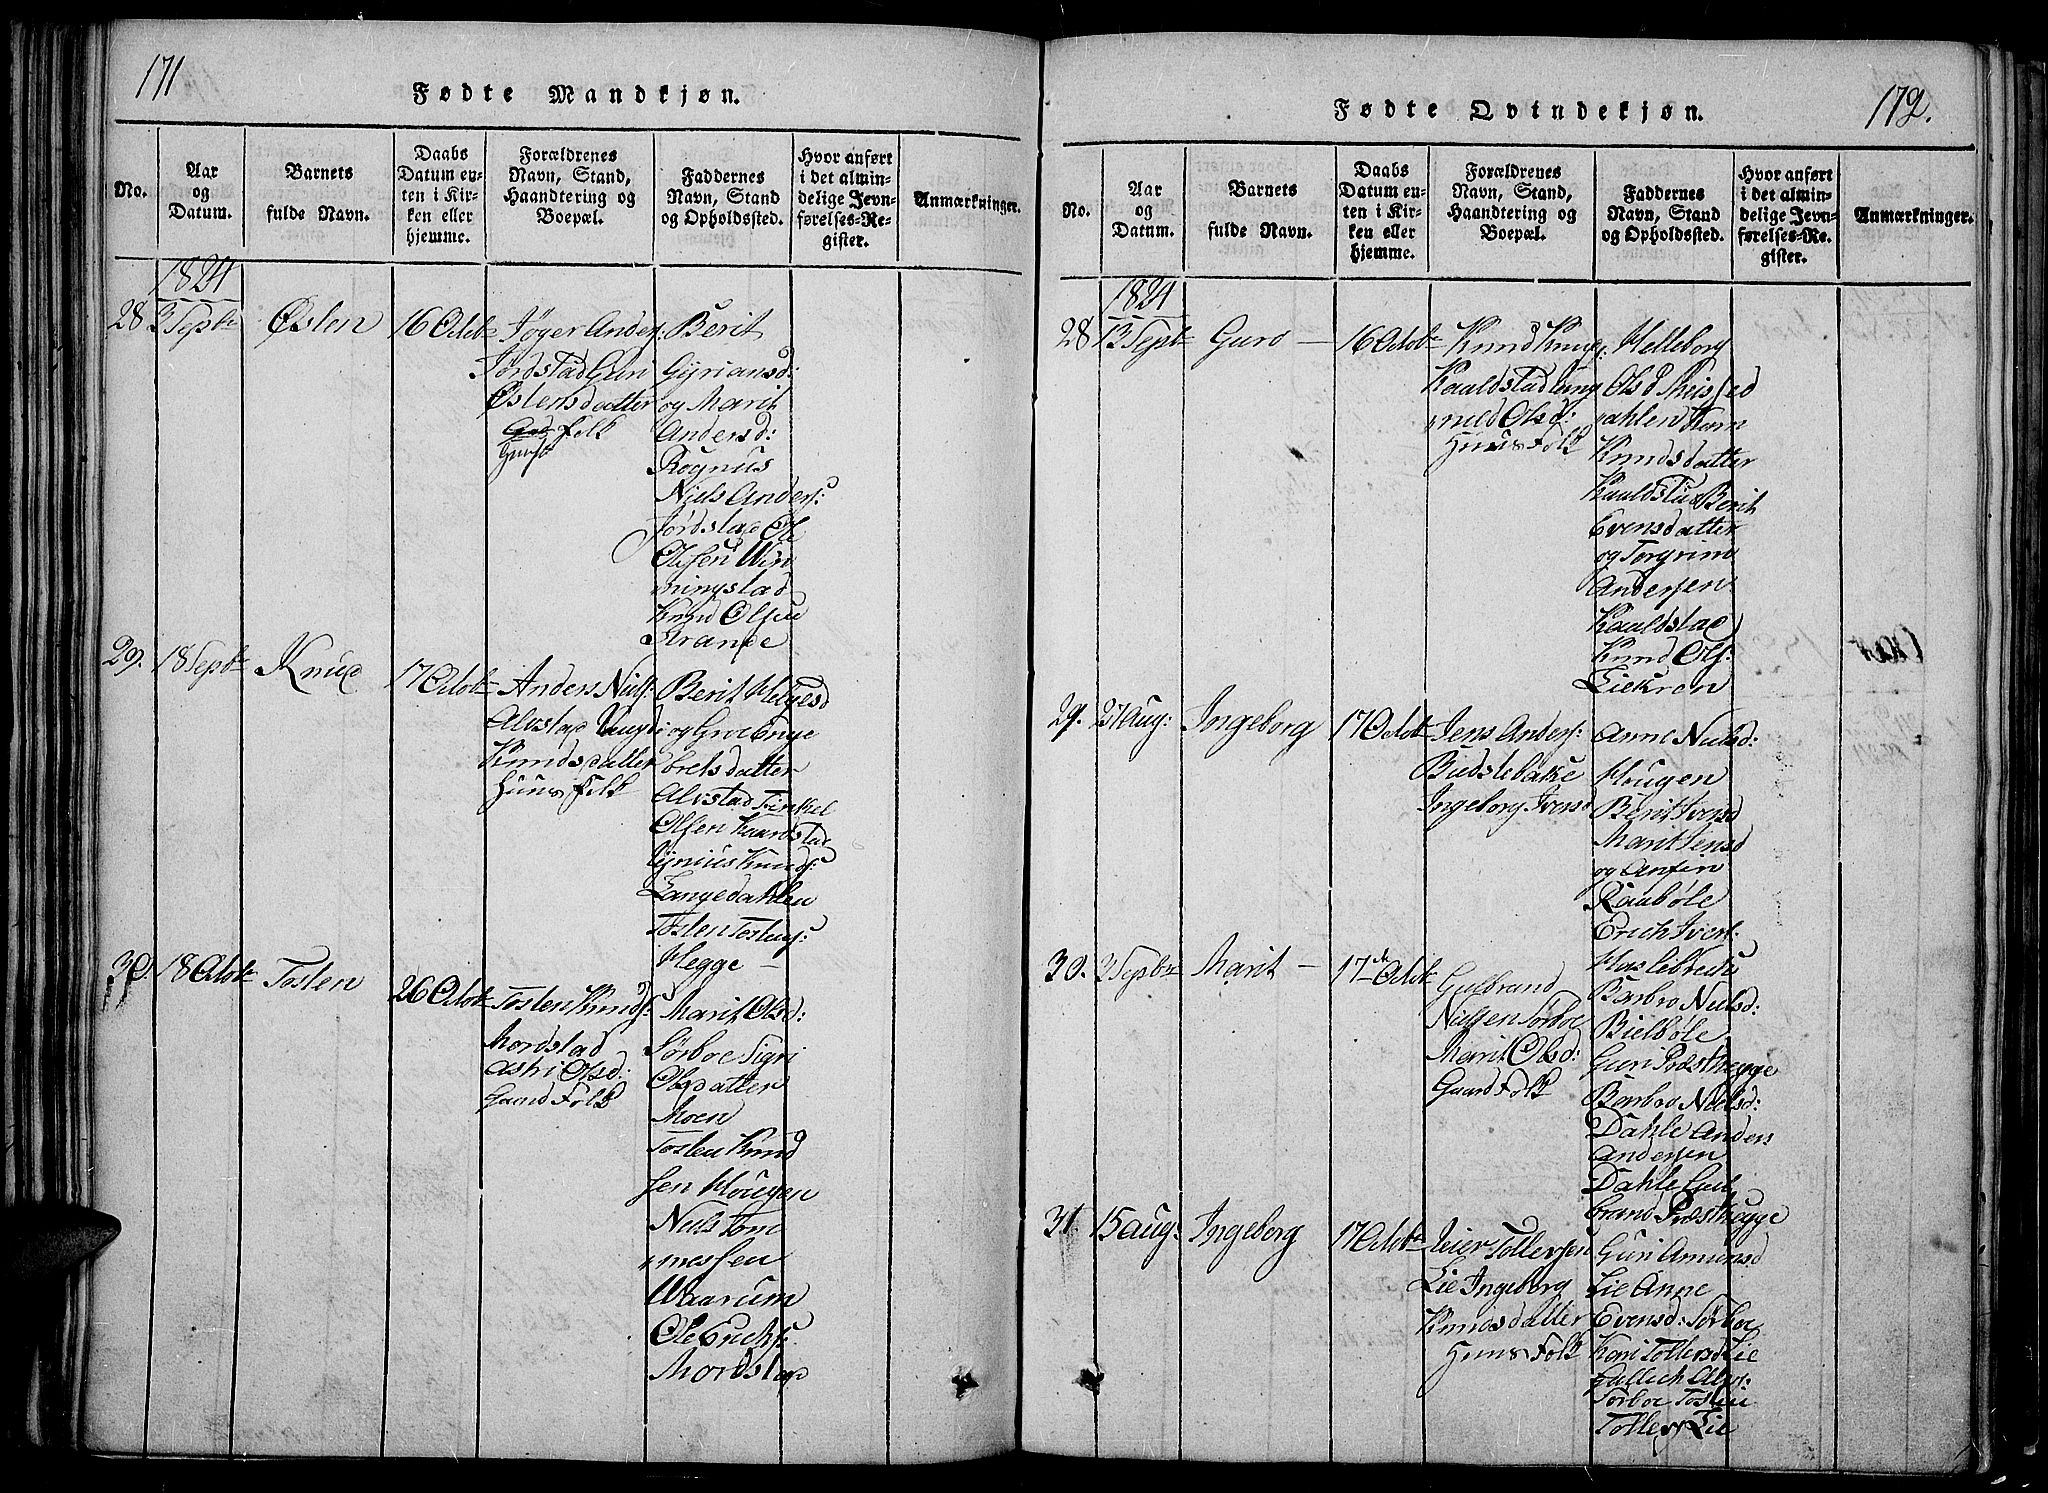 171
Fødte Mandkjøn.
No.
Aar
og
Datum.
Barnets
fulde Navn.
Daabs
Datum en-
ten i Kir-
ken eller
hjemme.
Forældrenes
Navn, Stand,
Haandtering og
Boepæl.
Faddernes
Navn, Stand
og Opholdssted.
Hvor anført
i det almin-
delige Jevn-
førelses-Re-
gister.
Anmærkninger.
1824
28
3 Septr
Østen
16 Octobr
Anders
Jørdstad Guri
Østensdatter
Folk
Huus
Berit
og Marit
Andersd:
Rognus
Niels Anders:
Jørdstad Ole
Olsen Win
mingstad
Knud Olsen
Strande
29.
18 Septr
Knud
17 Octobr
Anders Niels:
Alvstad
Knudsdatter
Huus Folk
Berit Helgesd
og Groe Enge
bretsdatter
Alvstad
Olsen
Knuds:
Langedahlen
Tosten
Hegge
30.
18 Octobr
Tosten
26 Octobr
Tosten Knuds:
Mordstad
Astri Olsd:
Gaard Folk
Marit Olsd:
Sørboe Sigri
Olsdatter
Moen
Tosten Knud
sen Hougen
Niels Tom
messen
Waarum
Ole Erichs:
Mordstad
172.
Fødte Qvindekjøn.
No.
Aar
og
Datum.
Barnets
fulde Navn.
Daabs
Datum en-
ten i Kir-
ken eller
hjemme.
Forældrenes
Navn, Stand,
Haandtering og
Boepæl.
Faddernes
Navn, Stand
og Opholdssted.
Hvor anført
i det almin-
delige Jevn-
førelses-Re-
gister.
Anmærkninger.
1824
28
13 Septr
Guro
16 Octobr
Knud Knuds:
Olsd:
Huus Folk
Helleborg
Olsd
dahlen
Knudsdatter
Kaaldstad Berit
Evensdatter
og Torgrim
Andersen
Kaaldstad
Knud Ols:
Liekren
29.
27 Aug:
Ingeborg
17 Octobr
Jens Anders:
Budslebake
Ingeborg Iversd
Anne Nielsd:
Hougen
Berit Iversd
Marit Jensd
og Anfin
Raubøle
Erich Ivers:
Haslebrecke
30.
3 Septr
Marit
17de Octobr
Gulbrand
Nielsen Sørboe
Marit Olsd:
Gaard Folk
Barbro Nielsd:
Bielbøle
Guri Præsthegge
Barbro Nielsd:
Dahle Anders
Andersen
Dahle Gul
brand Præsthegge
31.
15 Aug:
Ingeborg
17 Octobr
Tollersen
Lie Ingeborg
Knudsdatter
Huus Folk
Guri Amunsd
Lie Anne
Evensd: Sørboe
Kari Tollersd Lie
Sørboe Tosten
Tollers: Lie